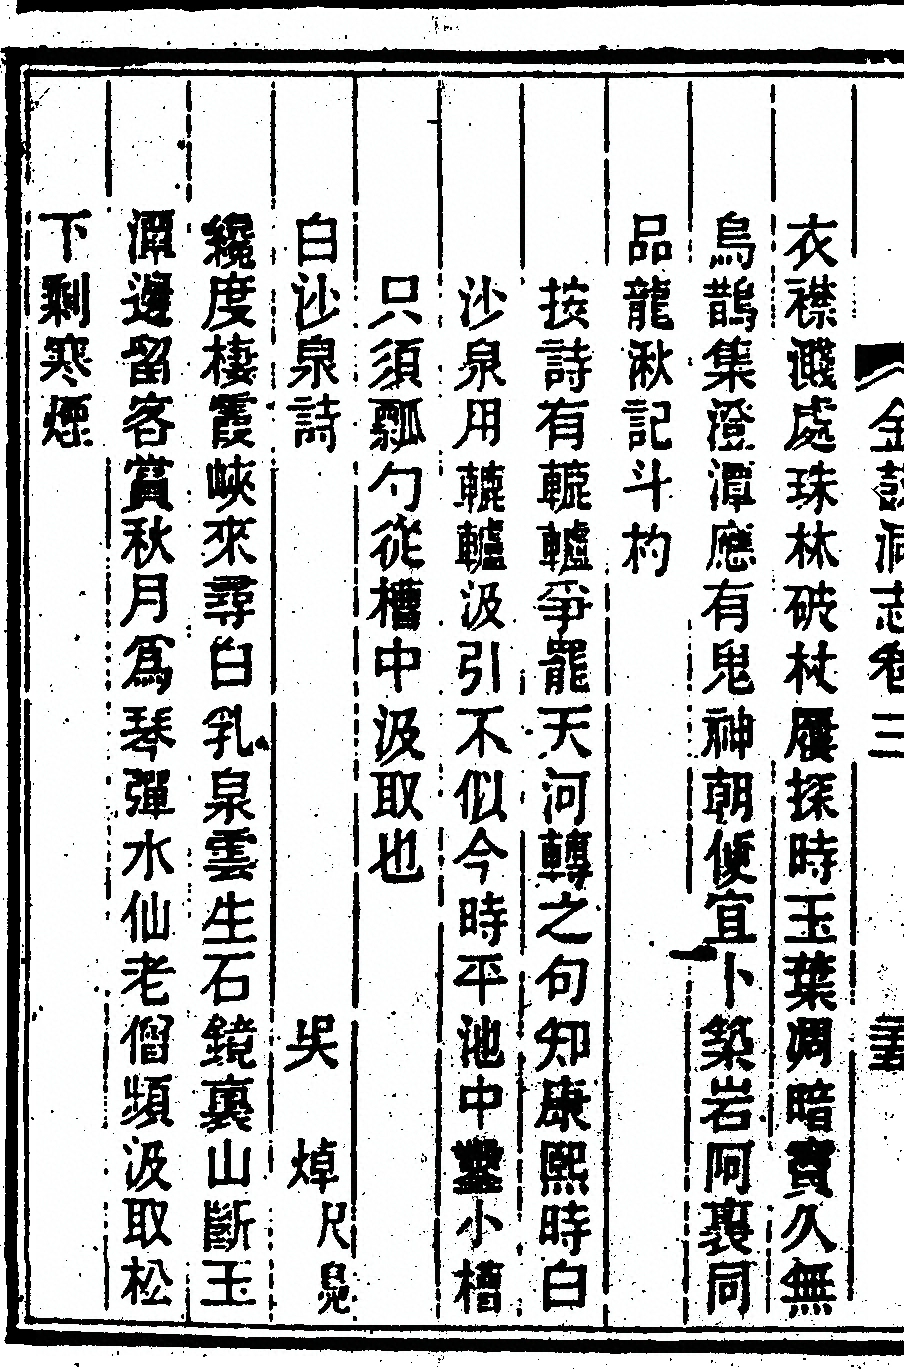 金鼓洞志卷三
衣襟濺處珠林破杖屨探時玉葉凋暗竇久無
烏鵲集澄潭應有鬼神朝便宜卜築岩阿裏同
品龍湫記斗杓
按詩有轆轤爭罷天河轉之句知康熙時白
沙泉用轆轤汲引不似今時平池中鑿小槽
只須瓢勺從槽中汲取也
白沙泉詩 吳焯尺鳧
纔度棲霞峽來尋白乳泉雲生石鏡裏山斷玉
潭邊留客賞秋月爲琴彈水仙老僧頻汲取松
下剩寒煙